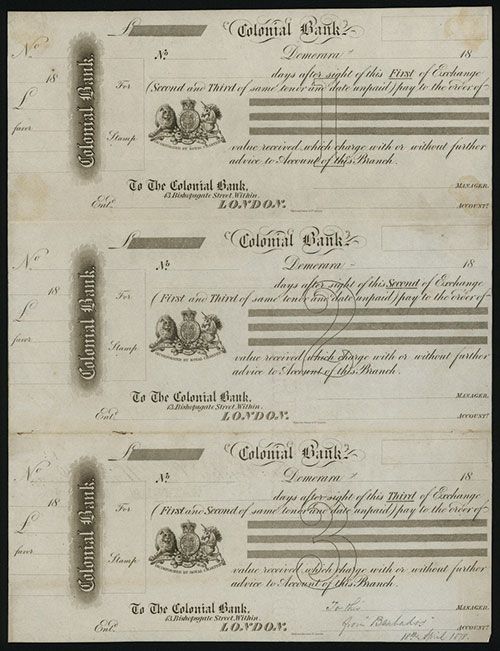 £ Colonial Bank.
No No Demerara 18
18 days after sight of this First of Exchange
Colonial Bank. For (Second and Third of same tenor and date unpaid) pay to the order of
£
favor INCORPORATED BY ROYAL CHARTER
Stamp. value received, which charge with or without further
advice to Account of this Branch.
To The Colonial Bank, MANAGER.
13, Bishopsgate Street, Within.
Entd. LONDON. ACCOUNTt.
£ Colonial Bank.
No No Demerara 18
18 days after sight of this Second of Exchange
Colonial Bank. For (First and Third of same tenor and date unpaid) pay to the order of
£ 2
favor INCORPORATED BY ROYAL CHARTER
Stamp value received, which charge with or without further
advice to Account of this Branch.
To The Colonial Bank, MANAGER.
13, Bishopsgate Street, Within.
Entd. LONDON. ACCOUNTt.
£ Colonial Bank.
No No Demerara 18
18 days after sight of this Third of Exchange
Colonial Bank. For (First and Second of same tenor and date unpaid) pay to the order of
£ 3
favor INCORPORATED BY ROYAL CHARTER
Stamp value received, which charge with or without further
advice to Account of this Branch.
To The Colonial Bank, To this MANAGER.
13, Bishopsgate Street, Within. from "Barbados"
Entd. LONDON. 18th April 1878. ACCOUNTt.